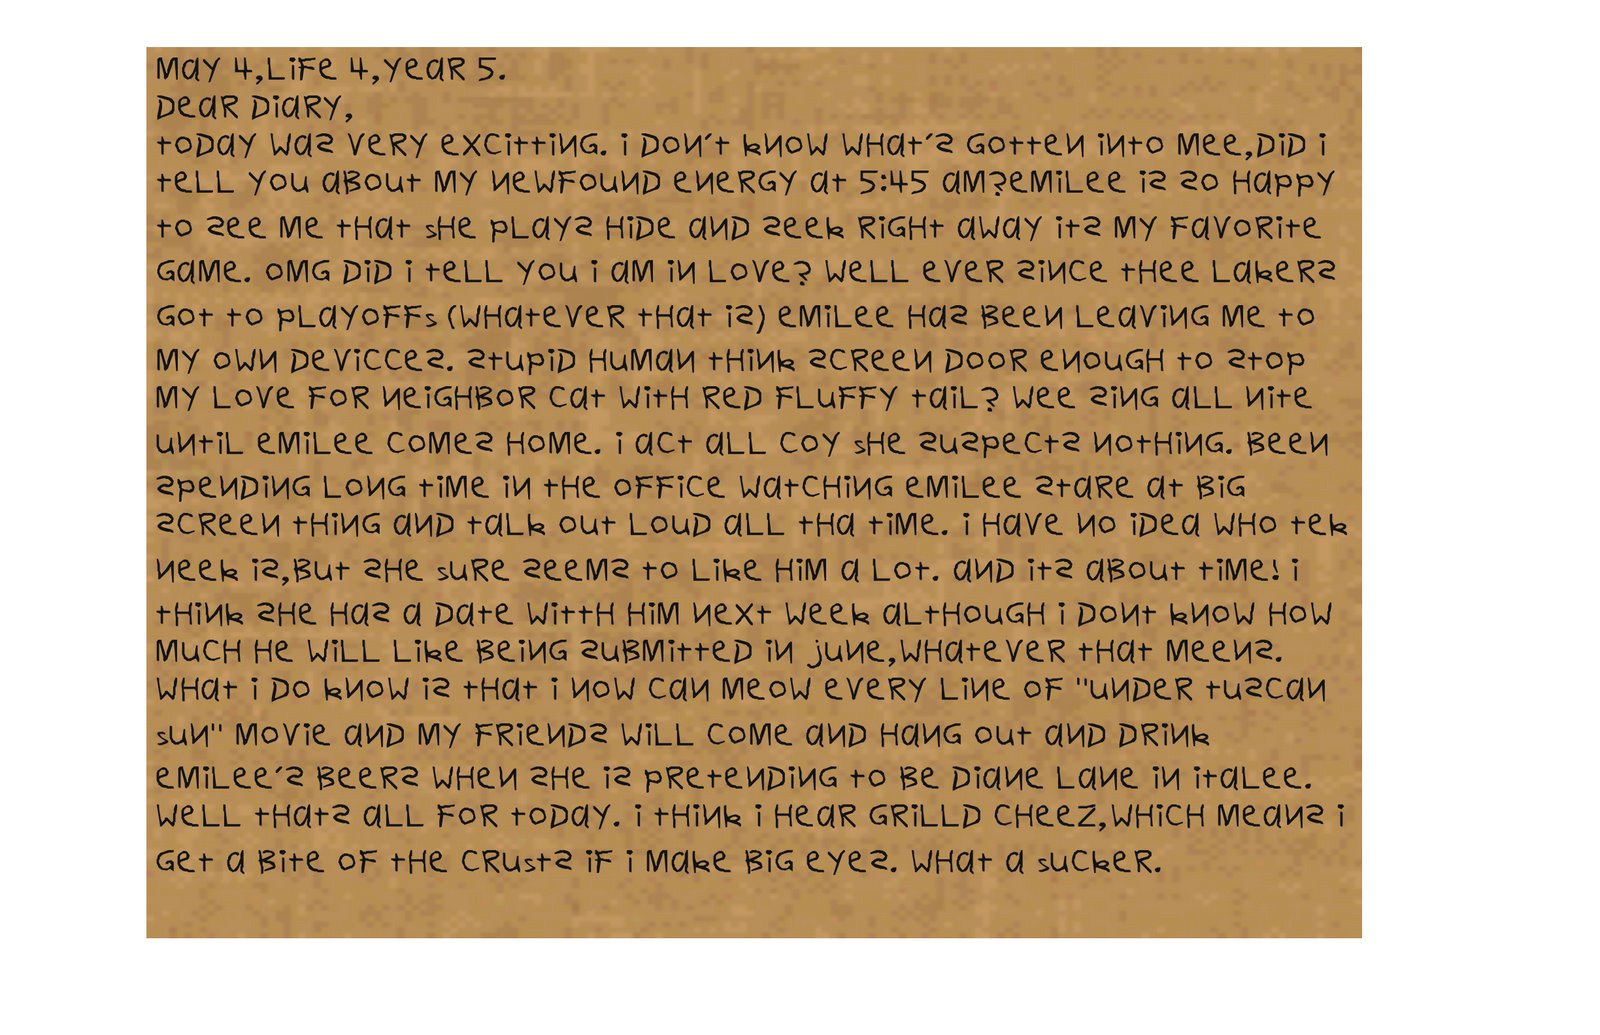 May 4,Life 4,year 5.
Dear Diary,
today was very excitting. i don't know what's gotten into mee,did i
tell you about my newfound energy at 5:45 am?emilee is so happy
to see me that she plays hide and seek right away its my favorite
game. omg did i tell you i am in love? well ever since thee lakers
got to playoffs (whatever that is) emilee has been leaving me to
my own devicces. stupid human think screen door enough to stop
my love for neighbor cat with red fluffy tail? wee sing all nite
until emilee comes home. i act all coy she suspects nothing. been
spending long time in the office watching emilee stare at big
screen thing and talk out loud all tha time. i have no idea who tek
neek is,but she sure seems to like him a lot. and its about time! i
think she has a date witth him next week although i dont know how
much he will like being submitted in june,whatever that meens.
what i do know is that i now can meow every line of "under tuscan
sun" movie and my friends will come and hang out and drink
emilee's beers when she is pretending to be diane lane in italee.
well thats all for today. i think i hear grilld cheez,which means i
get a bite of the crusts if i make big eyes. what a sucker.